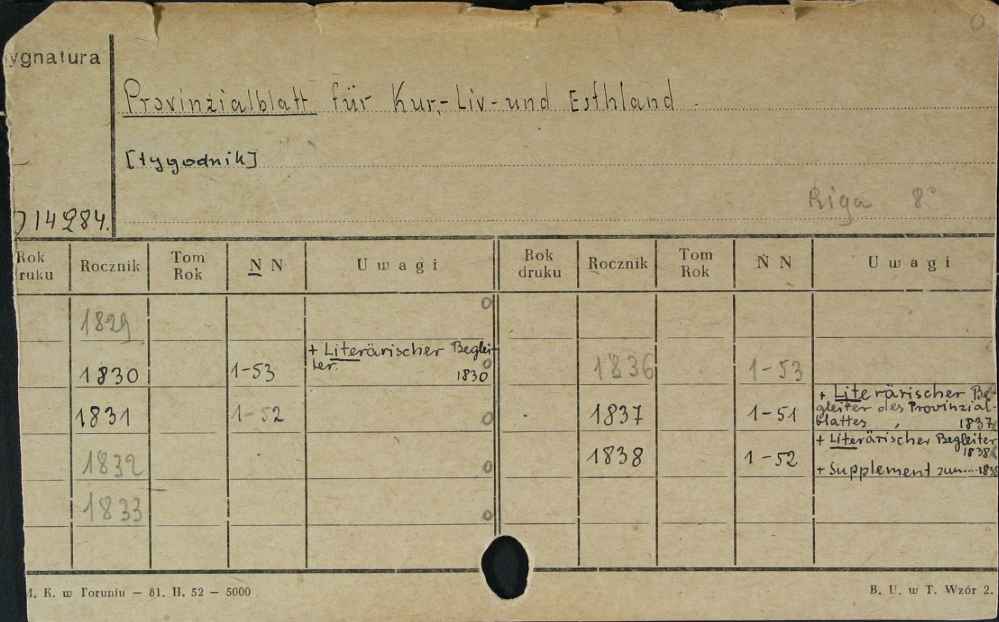 ygnatura
Provinzialblatt für Kur-, Liv- und Esthland
[tygodnik]
Riga 8°
14284.
Rok ruku Rocznik Tom Rok N N Uwagi Rok druku Rocznik Tom Rok N N Uwagi
1829
1830 1-53 + Literärischer Beglei-
ter. 1830
1836 1-53
1831 1-52
1837 1-51 + Literärischer Be-
gleiter des Provinzial-
blattes, 1837
1832
1838 1-52 + Literärischer Begleiter
1838
+ Supplement zum....
1833
M. K. w Toruniu — 81. II. 52 — 5000
B. U. w T. Wzór 2.